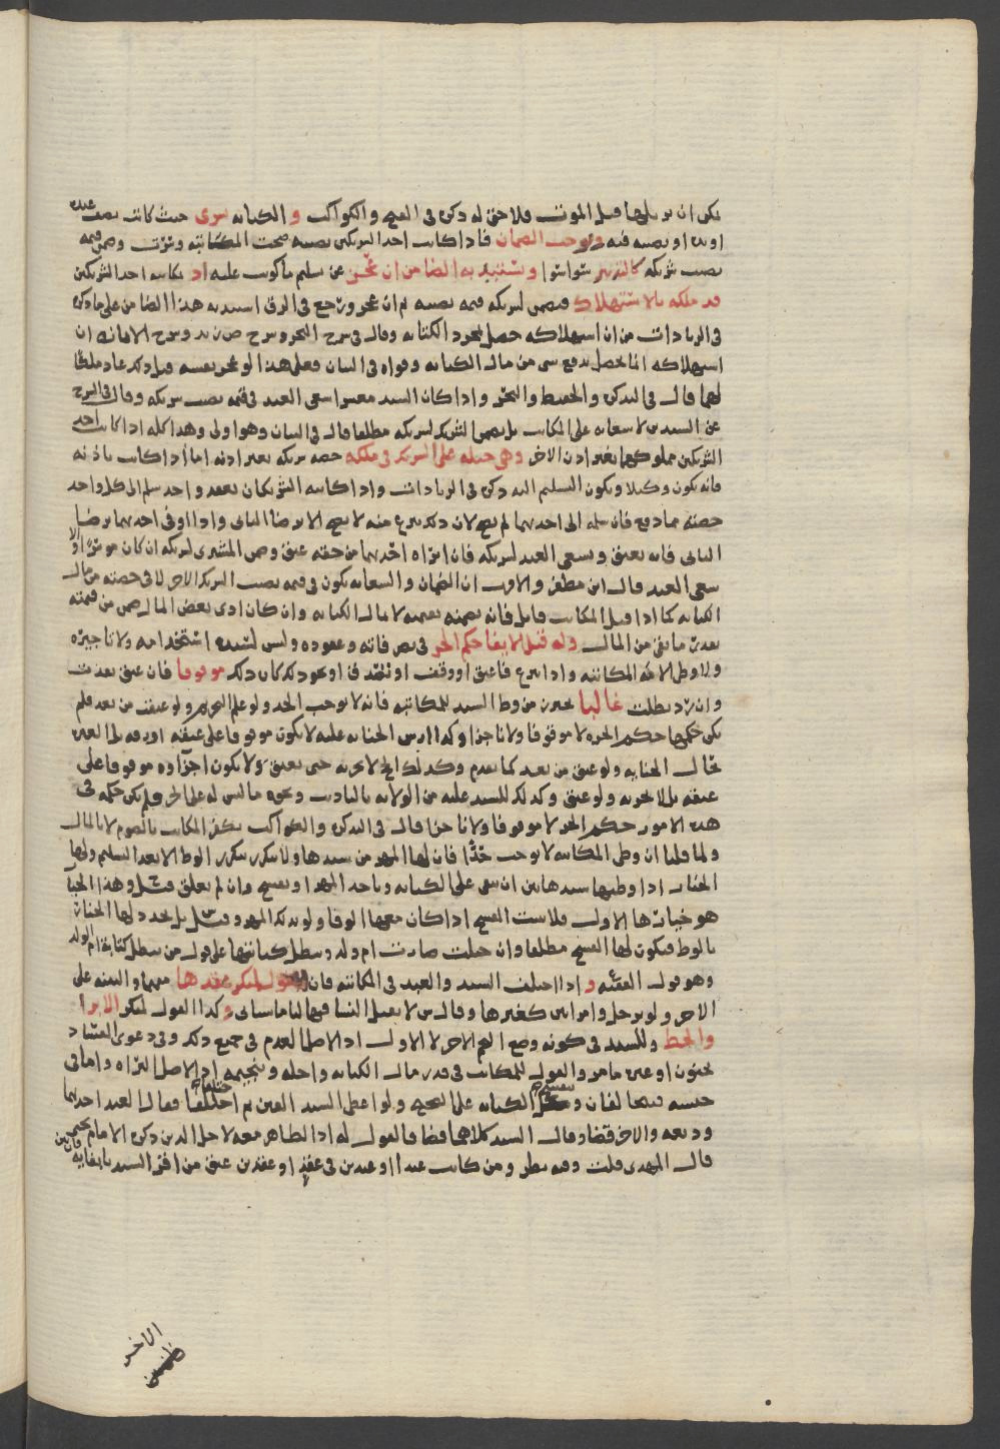 يكن ان يرىلها قبل الموت فلا حق له ذكره في الفتح والكواكب و الكتابه تسري حيث كانت بعض عبده
او بدن او نصيبه فيه وتوجب الضمان فاذا كاتب احد الشريكين نصيبه صحت المكاتبه وسرت وضمن قيمة
نصيب شريكه كالتدبير سوا سوا و يستبد به الضامن ان عجز عن تسليم ما كوتب عليه اذ بكتابه احد الشريكين
قد ملكه بالاستهلاك فيضمن لشريكه قيمه نصيبه ثم ان عجز ورجع في الرق استبد به هذا الضامن على ما ذكره
في الزيادات من ان استهلاكه حصل بمجرد الكتابه وقال في شرح البحر وشرح ض زيد وشرح الابانه ان
استهلاكه انما يحصل بدفع شي من مال الكتابه وقواه في البيان فعلى هذا لو عجز نفسه قبل ذلك عاد ملكا
لهما قال في التذكره والحفيظ والبحر واذا كان السيد معسرا سعى العبد في قيمه نصيب شريكه وقال في الشرح
عن السيدين لا سعايه على المكاتب بل يضمن الشريك لشريكه مطلقا قال في البيان وهو اولى وهذا كله اذا كاتب احد
الشريكين مملوكهما بغير اذن الاخر وهي جنايه على الشريك في ملكه حصه شريكه بغير اذنه اما اذا كاتب باذنه
فانه يكون وكيلا ويكون التسليم اليه ذكره في الزيادات واذا كاتبه الشريكان بعقد واحد سلم الى كل واحد
حصته مما دفع فان سلمه الى احدهما لم يصح لان ذلك تبرع منه لا يصح الا برضا الثاني واذا اوفى احدهما برضا
الثاني فانه يعتق ويسعى العبد لشريكه فان ابراه احدهما من حقه عتق وضمن المشتري لشريكه ان كان موسرا والا
سعى العبد قال ابن مظفر والاقرب ان الضمان والسعايه تكون في قيمه نصيب الشريك الاخر لا في حصته من مال
الكتابه كما اذا قتل المكاتب قاتل فانه يضمنه بقيمته لا بمال الكتابه وان كان ادى بعض المال ضمن من قيمته
بقدر ما بقي من المال وله قبل الايفا حكم الحر في تصرفاته وعقوده وليس لسيده استخدامه ولا تاجيره
ولا وطي الامه المكاتبه واذا تبرع فاعتق او وقف او تصدق او نحو ذلك كان ذلك موقوفا فان عتق نفذت
وان رد بطلت غالبا يحترز من وطي السيد للمكاتبه فانه لا يوجب الحد ولو علم التحريم ولو عتقت من بعد فلم
يكن حكمها حكم الحره لا موقوفا ولا ناجزا وكذا ارش الجنايه عليه لا يكون موقوفا على عتقه او رقه بل العبره
بحال الجنايه ولو عتق من بعد كما تقدم وكذلك الحج لا يجزيه حتى يعتق ولا يكون اجزاوه موقوفا على
عتقه بل لا يجزيه ولو عتق وكذلك للسيد عليه من الولايه بالتاديب ونحوه ما ليس له على الحر فلم يكن حكمه في
هذه الامور حكم الحر لا موقوفا ولا ناجزا قال في التذكره والكواكب يكفر المكاتب بالصوم لا بالمال
ولما قلنا ان وطي المكاتبه لا يوجب حدا فان لها المهر من سيدها ولا يتكرر بتكرر الوطي الا بعد التسليم ولها
الخيار اذا وطيها سيدها بين ان تبقى على الكتابه وتاخذ المهر او تفسخ وان لم تعلق قيل وهذا الخيار
هو خيارها الاول فلا يثبت الفسخ اذا كان معها الوفا ولو بذلك المهر وقيل بل يتجدد لها الخيار
بالوطي فيكون لها الفسخ مطلقا وان حبلت صارت ام ولد وتبطل كتابتها على قول من يبطل كتابة ام الولد
وهو قول الفقيه و اذا اختلف السيد والعبد في المكاتبه فان القول لمنكر عقدها منهما والبينه على
الاخر ولو برجل وامراتين كغيرها وقال لا تقبل النسا فيها لما سياتي وكذا القول لمنكر الابرا
والحط وللسيد في كونه وضع النجم الاخر لا الاول اذ الاصل العدم في جميع ذلك وفي دعوى الفساد
بجنون او غيره ما مر والقول للمكاتب في قدر مال الكتابه واجله وتنجيمه اذ الاصل البراه واما في
جنسه فيتحالفان وتفسخ الكتابه على الصحيح ولو اعطى السيد العين ثم اختلفا فقال العبد احدهما
وديعه والاخر قضا وقال السيد كلاهما قضا فالقول له اذ الظاهر معه لاجل الدين ذكره الامام يحيى
قال المهدي قلت وفيه نظر ومن كاتب عبدا او عبدين في عقد او عقدين عتق من اقر السيد بايفايه فان بين
الاخر